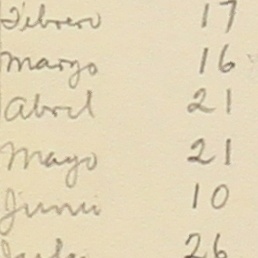 Febrero 17
Marzo 16
Abril 21
Mayo 21
Junio 10
Julio 26